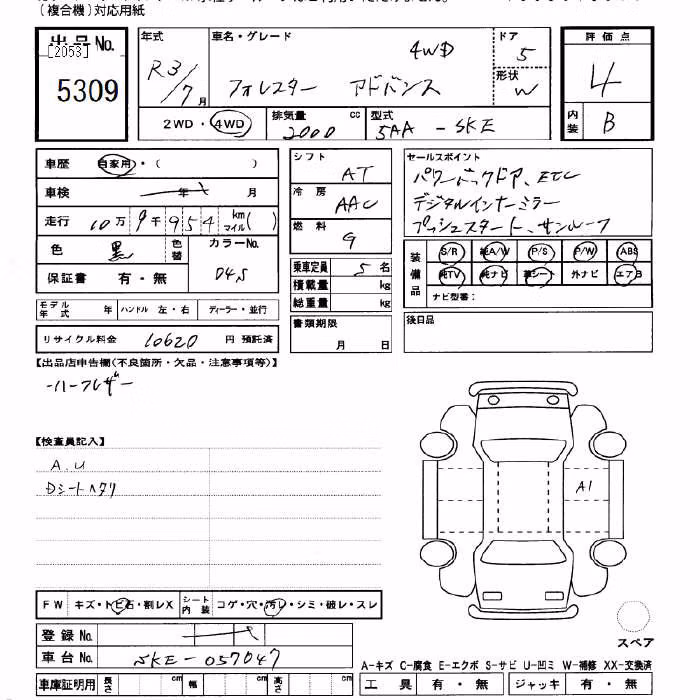 (複合機)対応用紙
出品No.
[2053]
5309
年式
R3/7月
車名・グレード
4WD
フォレスター アドバンス
ドア
5
形状
W
評価点
4
内装
B
2WD・4WD
排気量
2000 cc
型式
5AA - SKE
車歴 自家用・( )
車検 年 月
走行 10万 9千 954 km マイル( )
色 黒 色替 カラーNo. D4S
保証書 有・無
モデル年式 年 ハンドル 左・右 ディーラー・並行
リサイクル料金 10620 円 預託済
シフト AT
冷房 AAC
燃料 G
乗車定員 5 名
積載量 kg
総重量 kg
書類期限
月 日
セールスポイント
パワーバックドア、ETC
デジタルインナーミラー
プッシュスタート、サンルーフ
装備品
S/R 純A/W P/S P/W ABS
純TV 純ナビ 革シート 外ナビ エアB
ナビ型番:
後日品
【出品店申告欄(不良箇所・欠品・注意事項等)】
-ハーフレザー
【検査員記入】
A.U
Dシートヘタリ
A1
FW キズ・トビ石・割レX シート内装 コゲ・穴・汚レ・シミ・破レ・スレ
登録No.
車台No. SKE-057047
車庫証明用 長さ cm 幅 cm 高さ cm
スペア
A-キズ C-腐食 E-エクボ S-サビ U-凹ミ W-補修 XX-交換済
工具 有・無 ジャッキ 有・無